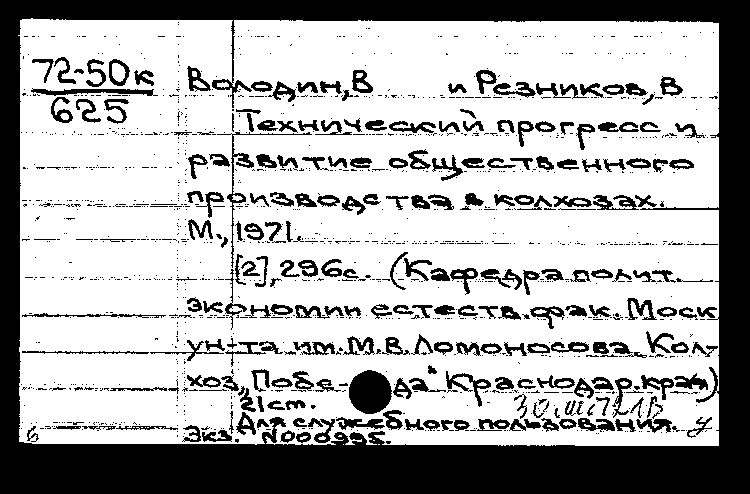 72-50к
625
Володин, В и Резников, В
Технический прогресс и
развитие общественного
производства в колхозах.
М., 1971.
[2], 296с. (Кафедра полит.
экономии естеств. фак. Моск
ун-та им. М.В. Ломоносова. Кол-
хоз „Побе- да" Краснодар. края)
21cm.
Для служебного пользования. у
Экз. N000995.
6